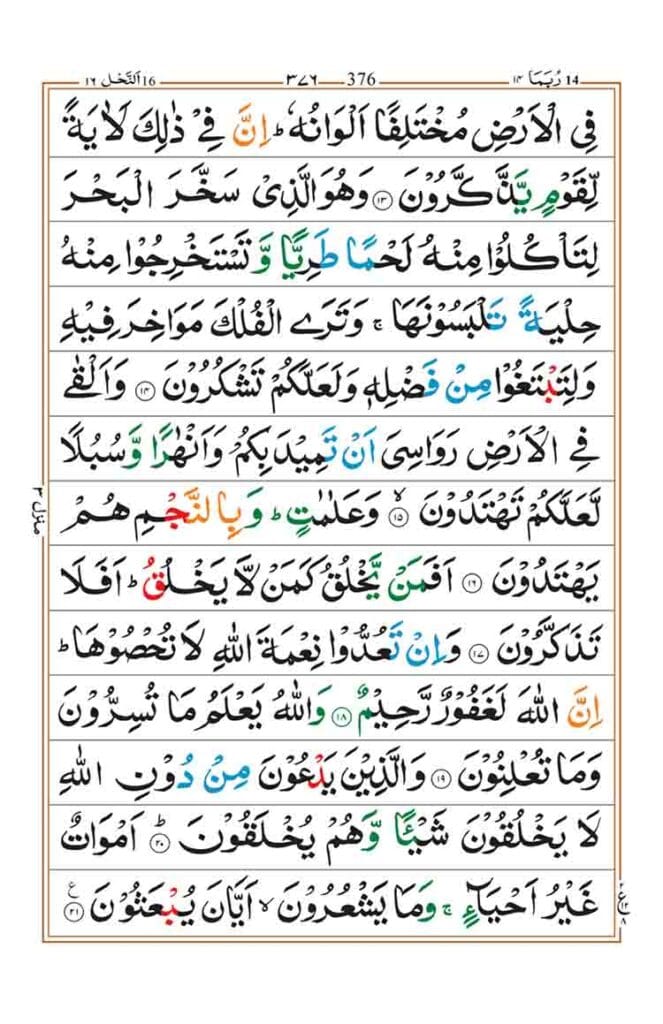 ١٤ رُبَمَا 14 376 ٣٧٦ 16 اَلنَّحْل ١٦
فِي الْاَرْضِ مُخْتَلِفًا اَلْوَانُهٗ ؕ اِنَّ فِيْ ذٰلِكَ لَاٰيَةً
لِّقَوْمٍ يَّذَّكَّرُوْنَ ۝۱۳ وَهُوَ الَّذِيْ سَخَّرَ الْبَحْرَ
لِتَاْكُلُوْا مِنْهُ لَحْمًا طَرِيًّا وَّ تَسْتَخْرِجُوْا مِنْهُ
حِلْيَةً تَلْبَسُوْنَهَا ۚ وَتَرَى الْفُلْكَ مَوَاخِرَ فِيْهِ
وَلِتَبْتَغُوْا مِنْ فَضْلِهٖ وَلَعَلَّكُمْ تَشْكُرُوْنَ ۝۱۴ وَاَلْقٰى
فِي الْاَرْضِ رَوَاسِيَ اَنْ تَمِيْدَ بِكُمْ وَاَنْهٰرًا وَّ سُبُلًا
لَّعَلَّكُمْ تَهْتَدُوْنَ ۝۱۵ۙ وَعَلٰمٰتٍ ؕ وَ بِالنَّجْمِ هُمْ
يَهْتَدُوْنَ ۝۱۶ اَفَمَنْ يَّخْلُقُ كَمَنْ لَّا يَخْلُقُ ؕ اَفَلَا
تَذَكَّرُوْنَ ۝۱۷ وَاِنْ تَعُدُّوْا نِعْمَةَ اللهِ لَا تُحْصُوْهَا ؕ
اِنَّ اللهَ لَغَفُوْرٌ رَّحِيْمٌ ۝۱۸ وَاللهُ يَعْلَمُ مَا تُسِرُّوْنَ
وَمَا تُعْلِنُوْنَ ۝۱۹ وَالَّذِيْنَ يَدْعُوْنَ مِنْ دُوْنِ اللهِ
لَا يَخْلُقُوْنَ شَيْـًٔا وَّ هُمْ يُخْلَقُوْنَ ۝۲۰ؕ اَمْوَاتٌ
غَيْرُ اَحْيَآءٍ ۚ وَمَا يَشْعُرُوْنَ ۙ اَيَّانَ يُبْعَثُوْنَ ۝۲۱ ع
منزل ٣